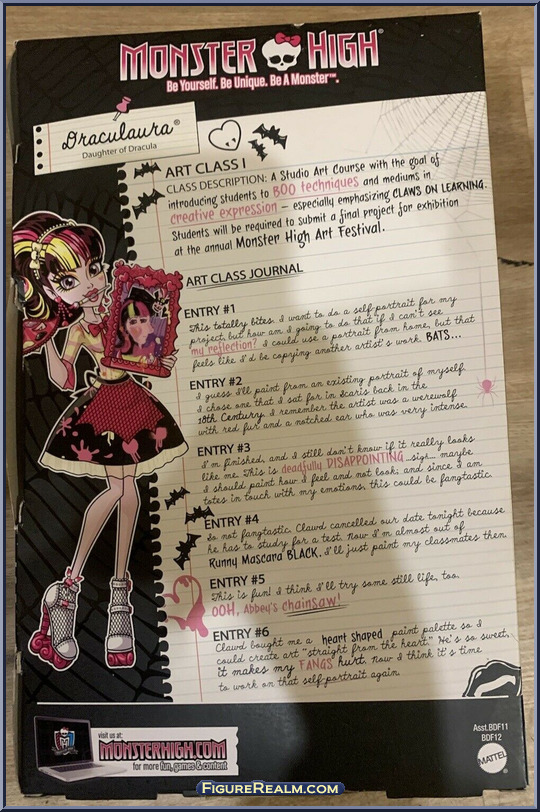 MONSTER HIGH®
Be Yourself. Be Unique. Be A Monster™.
Draculaura®
Daughter of Dracula
ART CLASS I
CLASS DESCRIPTION: A Studio Art Course with the goal of
introducing students to BOO techniques and mediums in
creative expression – especially emphasizing CLAWS ON LEARNING.
Students will be required to submit a final project for exhibition
at the annual Monster High Art Festival.
ART CLASS JOURNAL
ENTRY #1
This totally bites. I want to do a self-portrait for my
project, but how am I going to do that if I can't see
my reflection? I could use a portrait from home, but that
feels like I'd be copying another artist's work. BATS...
ENTRY #2
I guess I'll paint from an existing portrait of myself.
I chose one that I sat for in Scaris back in the
18th Century. I remember the artist was a werewolf
with red fur and a notched ear who was very intense.
ENTRY #3
I'm finished, and I still don't know if it really looks
like me. This is deadfully DISAPPOINTING...sigh... maybe
I should paint how I feel and not look; and since I am
totes in touch with my emotions, this could be fangtastic.
ENTRY #4
So not fangtastic. Clawd cancelled our date tonight because
he has to study for a test. Now I'm almost out of
Runny Mascara BLACK. I'll just paint my classmates then.
ENTRY #5
This is fun! I think I'll try some still life, too.
OOH, Abbey's chainsaw!
ENTRY #6
Clawd bought me a heart shaped paint palette so I
could create art "straight from the heart." He's so sweet,
it makes my FANGS hurt. Now I think it's time
to work on that self-portrait again.
visit us at:
MONSTERHIGH.COM
for more fun, games & content
Asst.BDF11
BDF12
MATTEL
FIGUREREALM.COM